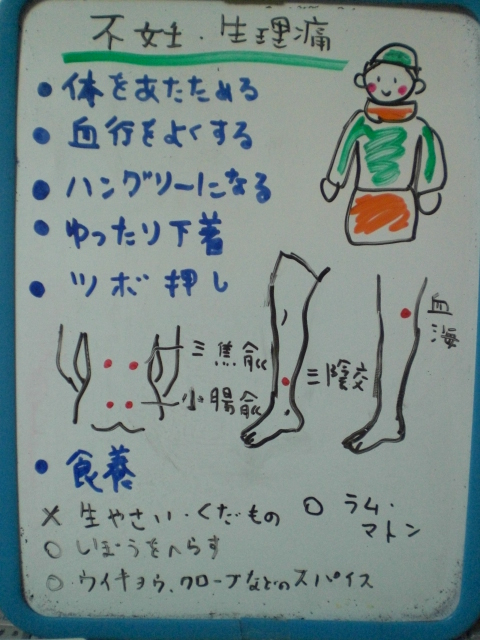 不妊・生理痛
● 体をあたためる
● 血行をよくする
● ハングリーになる
● ゆったり下着
● ツボ押し
三焦兪
小腸兪
三陰交
血海
● 食養
× 生やさい・くだもの
○ しぼうをへらす
○ ウイキョウ、クローブなどのスパイス
○ ラム・
マトン